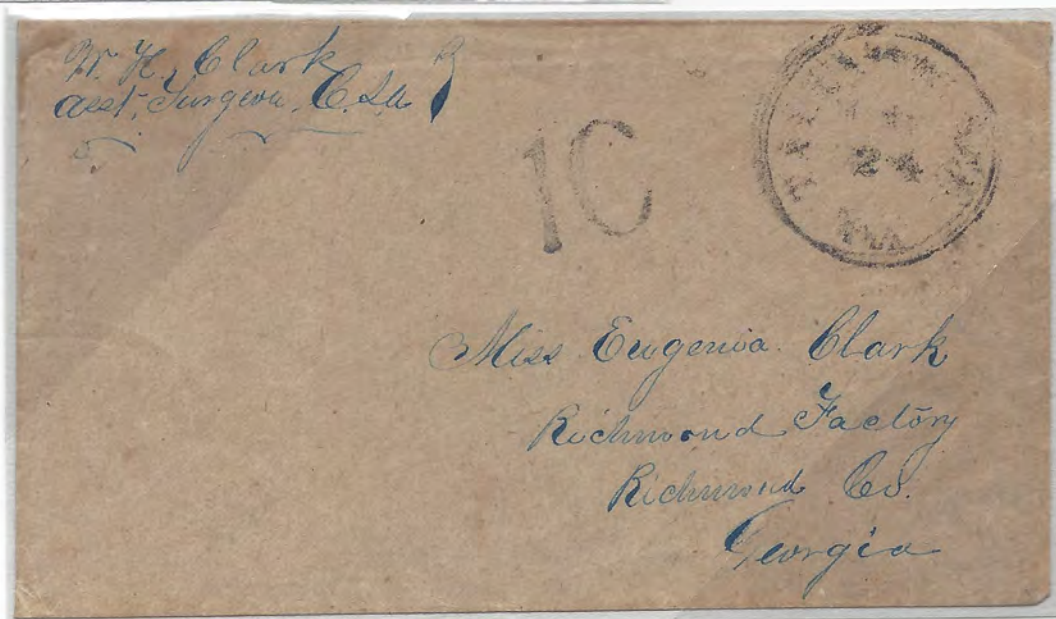 W. H. Clark
asst. Surgeon C.S.A
10
24
Miss Eugenia Clark
Richmond Factory
Richmond Co.
Georgia